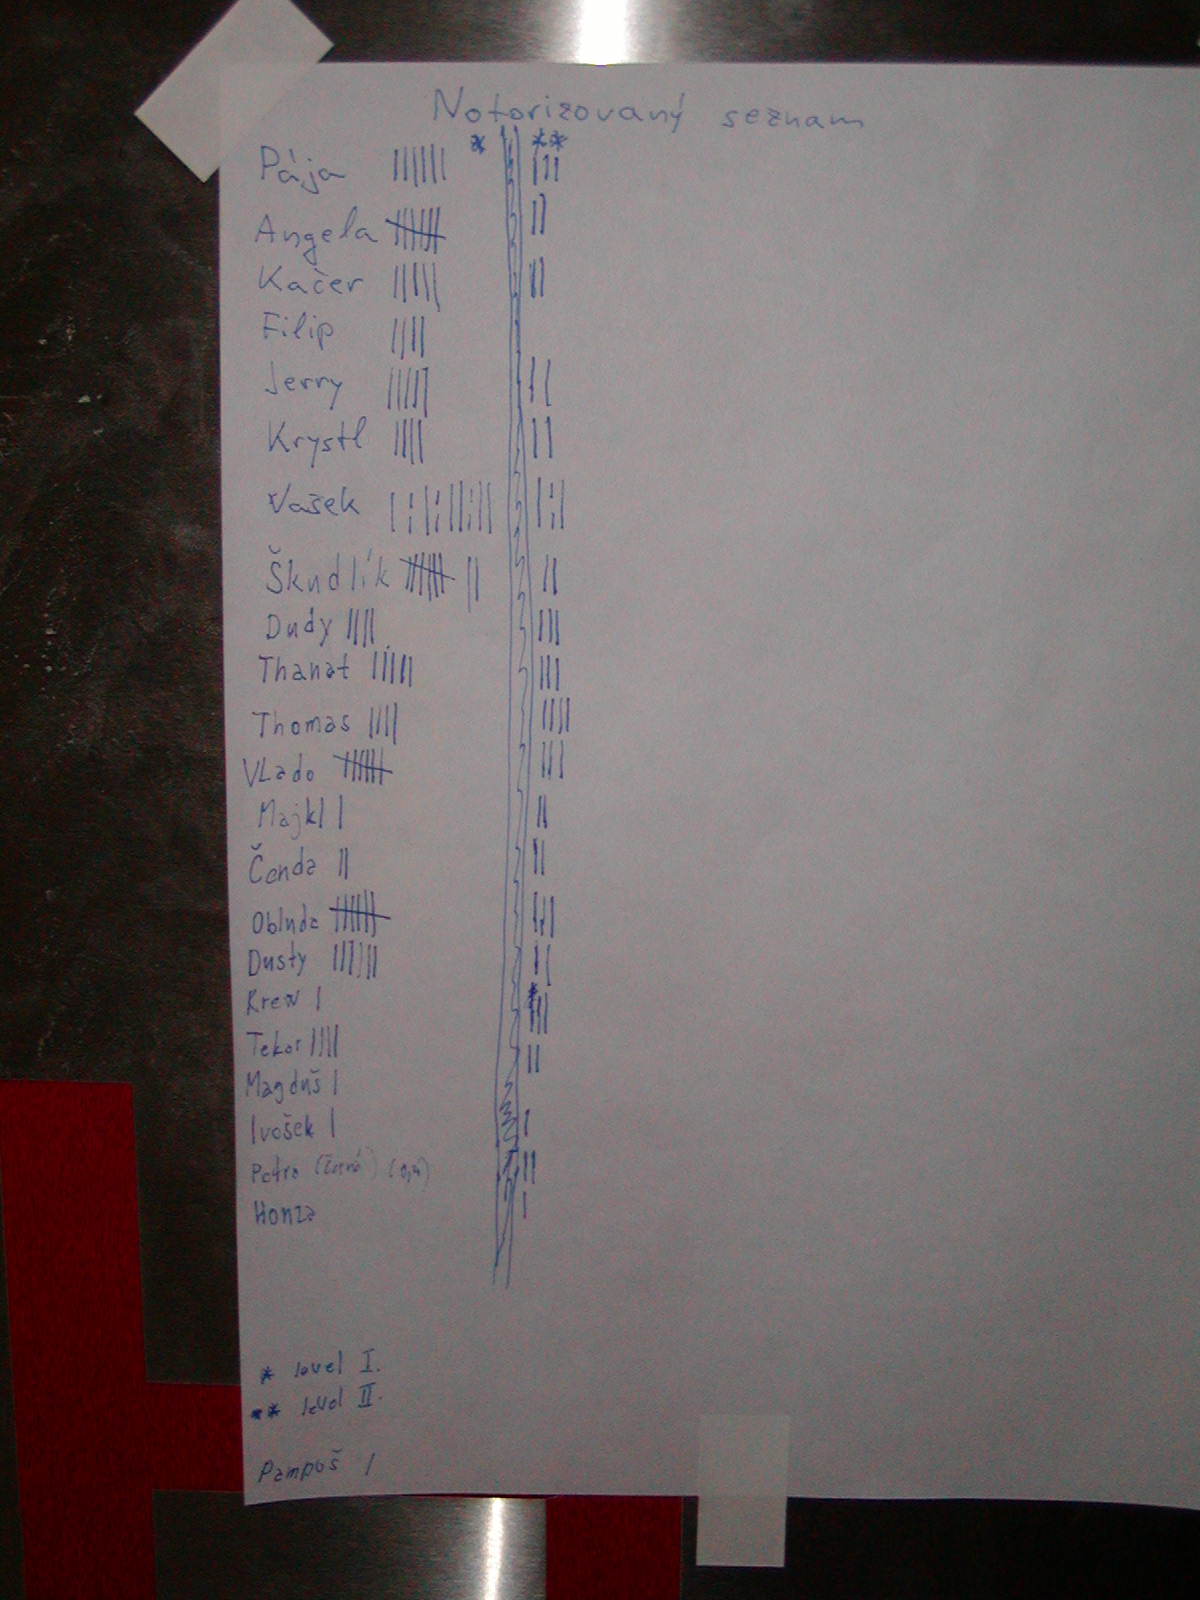 Notorizovaný seznam
* **
Pája |||||| |||
Angela
Kačer ||||| ||
Filip ||||
Jerry ||||| ||
Krystl |||| ||
Vašek
Škudlík
Dudy |||| |||
Thanat ||||| |||
Thomas |||| ||||
VLado
Majkl | ||
Čenda || ||
Obluda
Dusty |||||| ||
Krew |
Tekor |||| ||
Magduš |
Ivošek | |
Petra ||
Honza |
* level I.
** level II.
Pampuš |